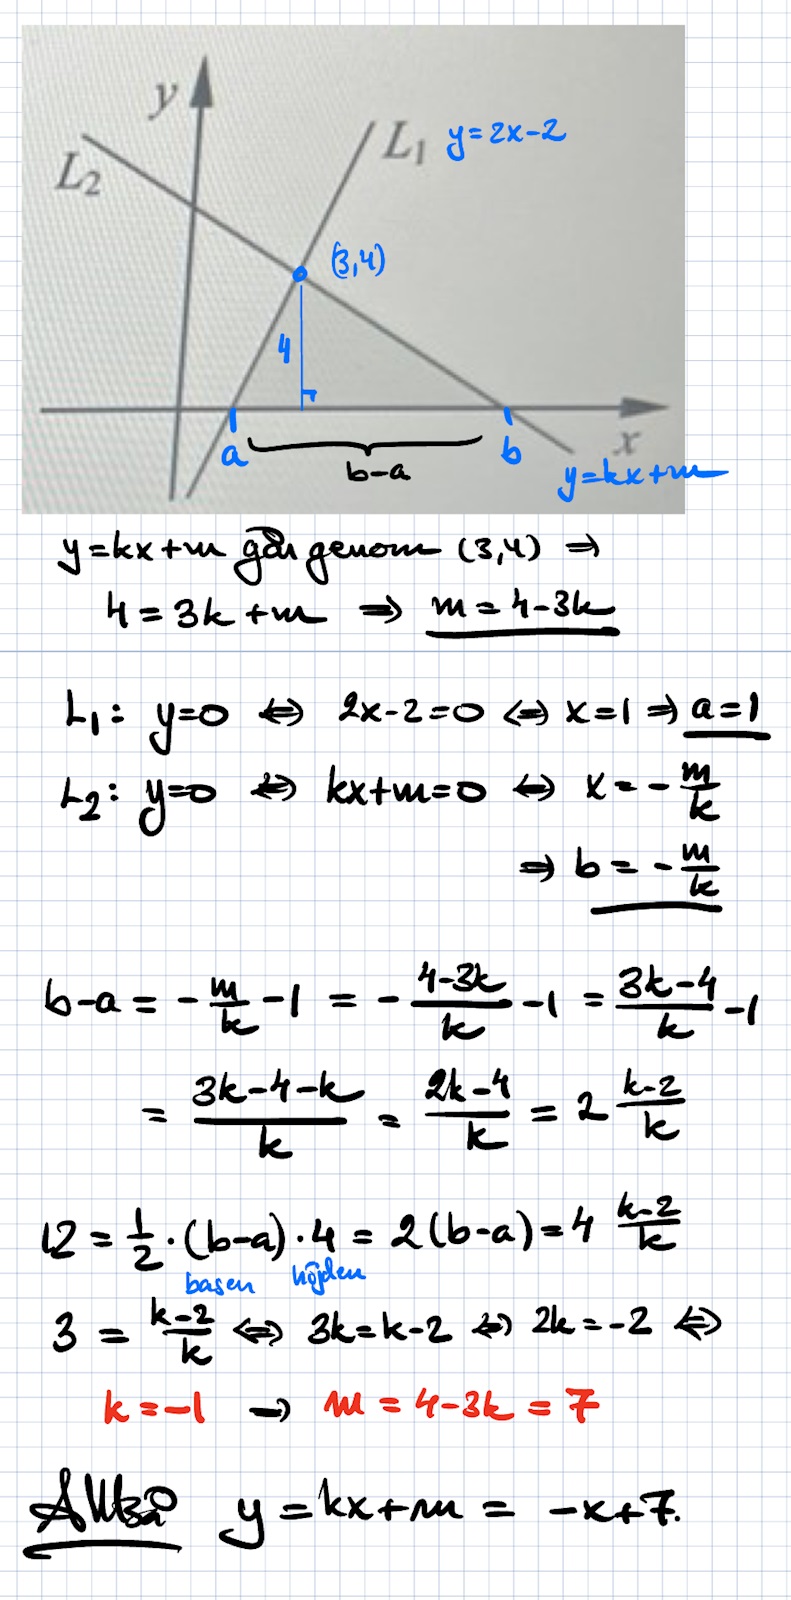 y
L₂
L₁ y=2x-2
(3,4)
4
a b x
b-a
y=kx+m
y=kx+m går genom (3,4) ⇒
4=3k+m ⇒ m=4-3k
L₁: y=0 ⇔ 2x-2=0 ⇔ x=1 ⇒ a=1
L₂: y=0 ⇔ kx+m=0 ⇔ x=-m/k
⇒ b=-m/k
b-a=-m/k-1=-(4-3k)/k-1=(3k-4)/k-1
=(3k-4-k)/k=(2k-4)/k=2 (k-2)/k
12=1/2·(b-a)·4=2(b-a)=4 (k-2)/k
basen höjden
3=(k-2)/k ⇔ 3k=k-2 ⇔ 2k=-2 ⇔
k=-1 → m=4-3k=7
y=kx+m=-x+7.